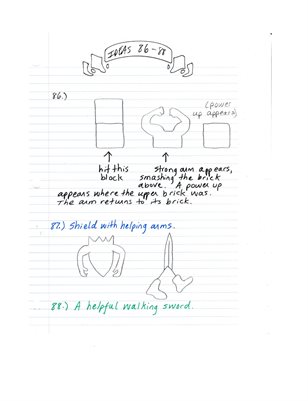 IDEAS 86-88
86.)
(power
up appears)
hit this
block
strong arm appears,
smashing the brick
above. A power up
appears where the upper brick was.
The arm returns to its brick.
87.) Shield with helping arms.
88.) A helpful walking sword.